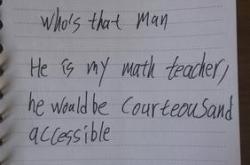 who's that man
He is my math teacher,
he would be courteous and
accessible